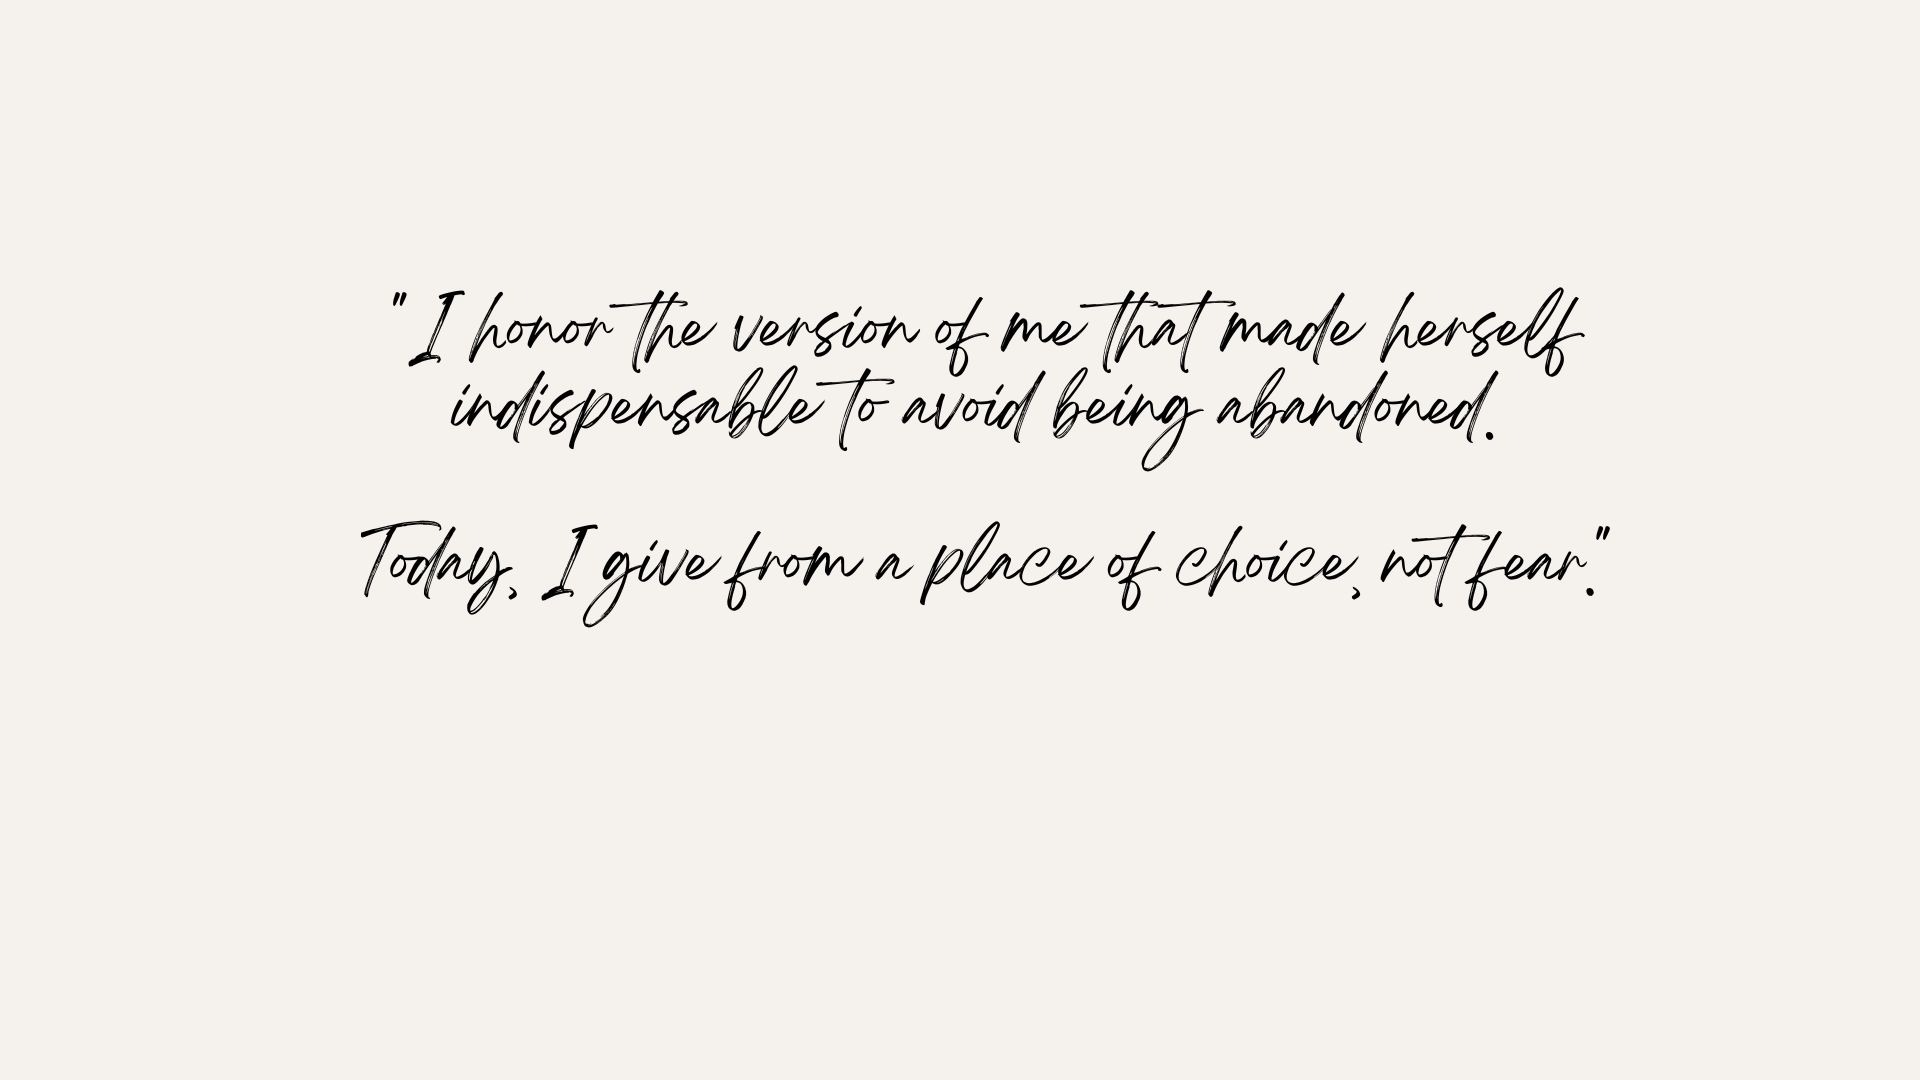 " I honor the version of me that made herself
indispensable to avoid being abandoned.
Today, I give from a place of choice, not fear."